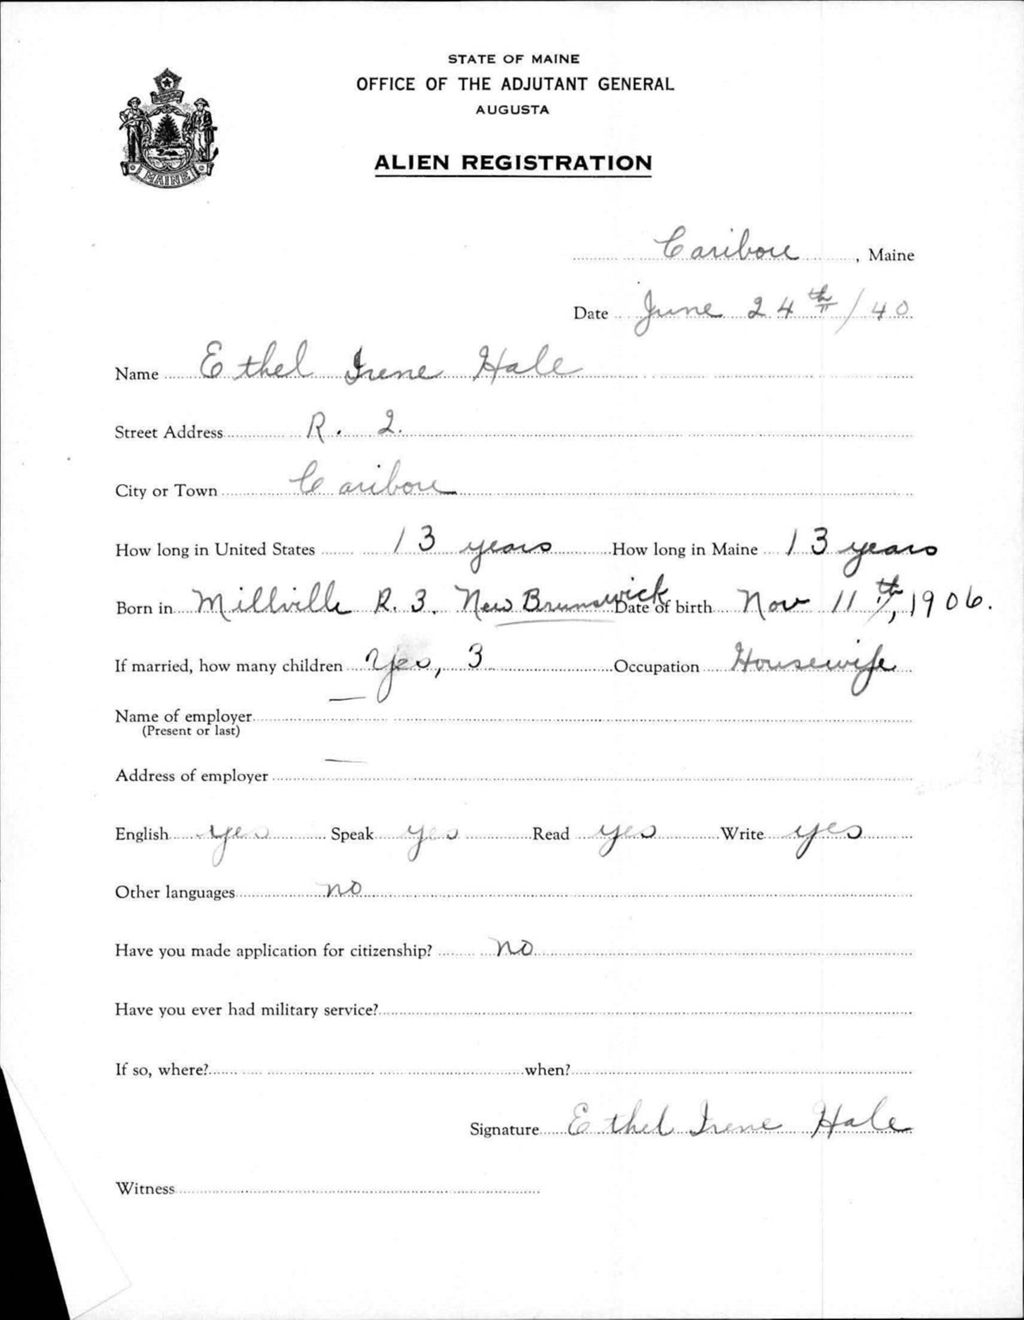 STATE OF MAINE
OFFICE OF THE ADJUTANT GENERAL
AUGUSTA
ALIEN REGISTRATION
MAINE
Caribou, Maine
Date June 24th/40
Name Ethel Irene Hale
Street Address R. 2.
City or Town Caribou
How long in United States 13 years How long in Maine 13 years
Born in Millville R. 3. New Brunswick Date of birth Nov 11th, 1906.
If married, how many children Yes, 3 Occupation Housewife
Name of employer —
(Present or last)
Address of employer —
English yes Speak yes Read yes Write yes
Other languages no
Have you made application for citizenship? no
Have you ever had military service?
If so, where? when?
Signature Ethel Irene Hale
Witness